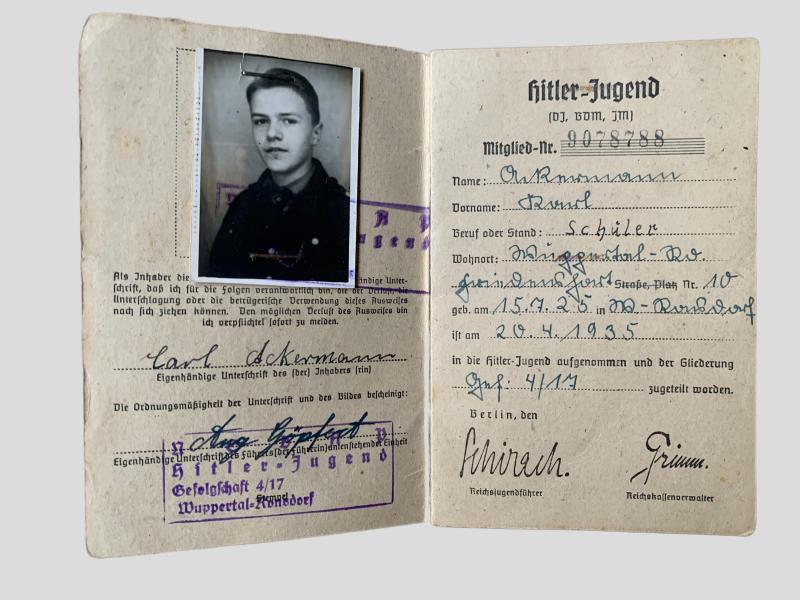 Als Inhaber die ändige Unter-
schrift, daß ich für die Folgen verantwortlich bin, die der Verlust, die
Unterschlagung oder die betrügerische Verwendung dieses Ausweises
nach sich ziehen können. Den möglichen Verlust des Ausweises bin
ich verpflichtet sofort zu melden.
Carl Ackermann
Eigenhändige Unterschrift des (der) Inhabers (rin)
Die Ordnungsmäßigkeit der Unterschrift und des Bildes bescheinigt:
Aug Göpfert
Eigenhändige Unterschrift des Führers (der Führerin) untenstehender Einheit
N S D A P
Hitler-Jugend
Gefolgschaft 4/17
Stempel
Wuppertal-Ronsdorf
A P
ugend
Hitler-Jugend
(DJ, BDM, JM)
Mitglied-Nr. 9078788
Name: Ackermann
Vorname: Karl
Beruf oder Stand: Schüler
Wohnort: Wuppertal-Ro.
Friedenshort Straße, Platz Nr. 10
geb. am 15.7.25 in W-Ronsdorf
ist am 20.4.1935
in die Hitler-Jugend aufgenommen und der Gliederung
Gef: 4/17 zugeteilt worden.
Berlin, den
Schirach. Grimm.
Reichsjugendführer Reichskassenverwalter